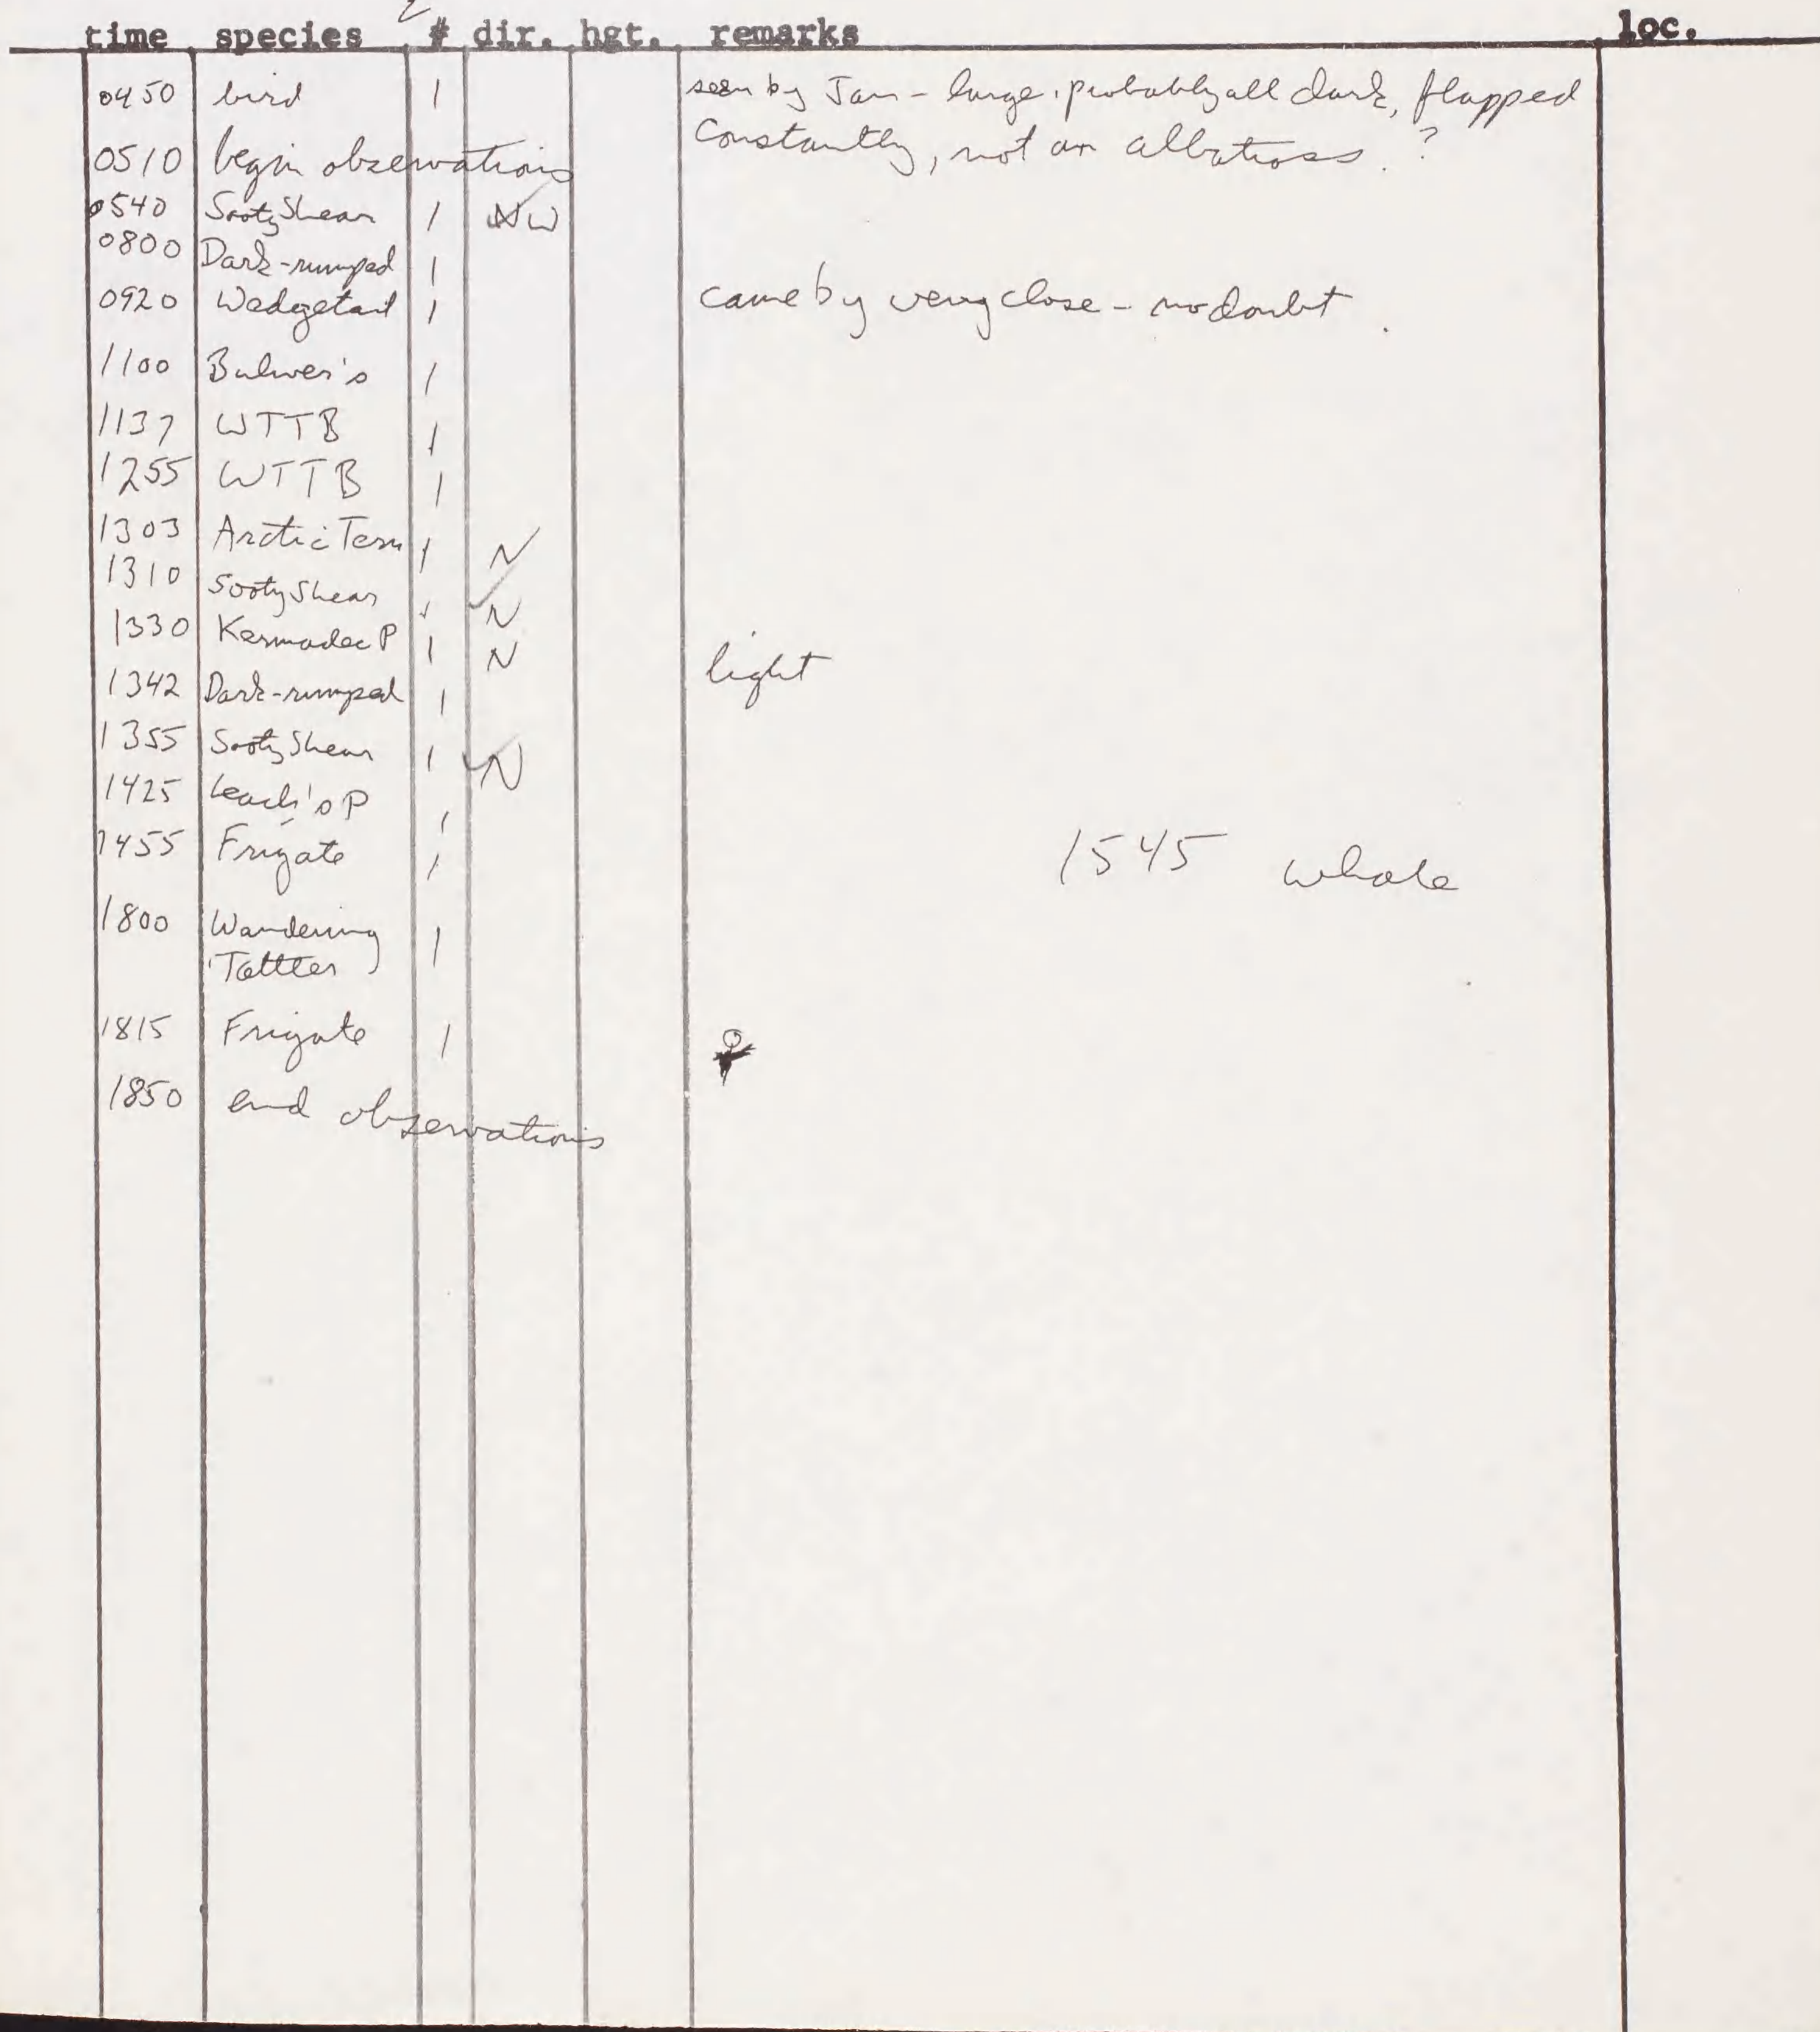 time species # dir. hgt. remarks loc.
0450 bird 1 seen by Jan - large, probably all dark, flapped
constantly, not an albatross. ?
0510 begin observations
0540 Sooty Shear 1 NW
0800 Dark-rumped 1
0920 Wedgetail 1 came by very close - no doubt.
1100 Bulwer's 1
1137 WTTB 1
1255 WTTB 1
1303 Arctic Tern 1 N
1310 Sooty Shear 1 N
1330 Kermadec P 1 N light
1342 Dark-rumped 1
1355 Sooty Shear 1 N
1425 Leach's P 1
1455 Frigate 1
1545 whale
1800 Wandering 1
Tattler
1815 Frigate 1 ♀
1850 end observations